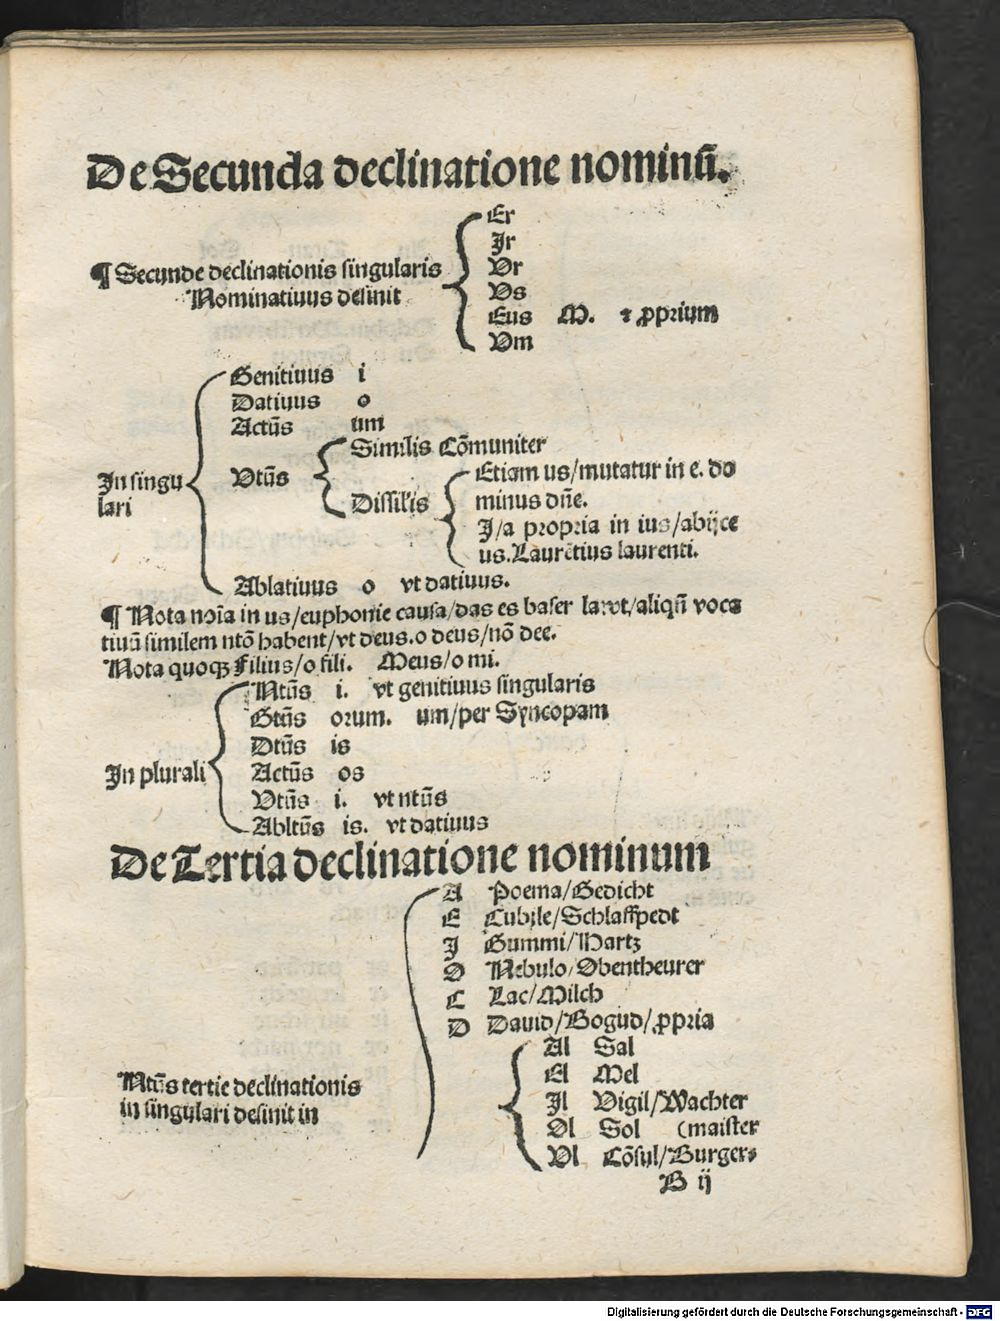 De Secunda declinatione nominū.
Er
Ir
Vr
Vs
Eus M. ⁊ ꝓprium
Vm
¶ Secunde declinationis singularis
Nominatiuus desinit
In singu
lari
Genitiuus i
Datiuus o
Actūs um
Vtūs
Similis Cōmuniter
Dissilis
Etiam us/mutatur in e. do
minus dñe.
I/a propria in ius/abijce
us. Laurētius laurenti.
Ablatiuus o vt datiuus.
¶ Nota noīa in us/euphonie causa/das es baser lawt/aliqñ voca
tiuū similem ntō habent/vt deus. o deus/nō dee.
Nota quoqꝫ Filius/o fili. Meus/o mi.
In plurali
Ntūs i. vt genitiuus singularis
Gtūs orum. um/per Syncopam
Dtūs is
Actūs os
Vtūs i. vt ntūs
Abltūs is. vt datiuus
De Tertia declinatione nominum
Ntūs tertie declinationis
in singulari desinit in
A Poema/Gedicht
E Cubile/Schlaffpedt
I Gummi/Hartz
O Nebulo/Obentheurer
C Lac/Milch
D Dauid/Bogud/ꝓpria
Al Sal
El Mel
Il Vigil/Wachter
Ol Sol (maister
Vl Cōsul/Burger⸗
B ij
Digitalisierung gefördert durch die Deutsche Forschungsgemeinschaft - DFG